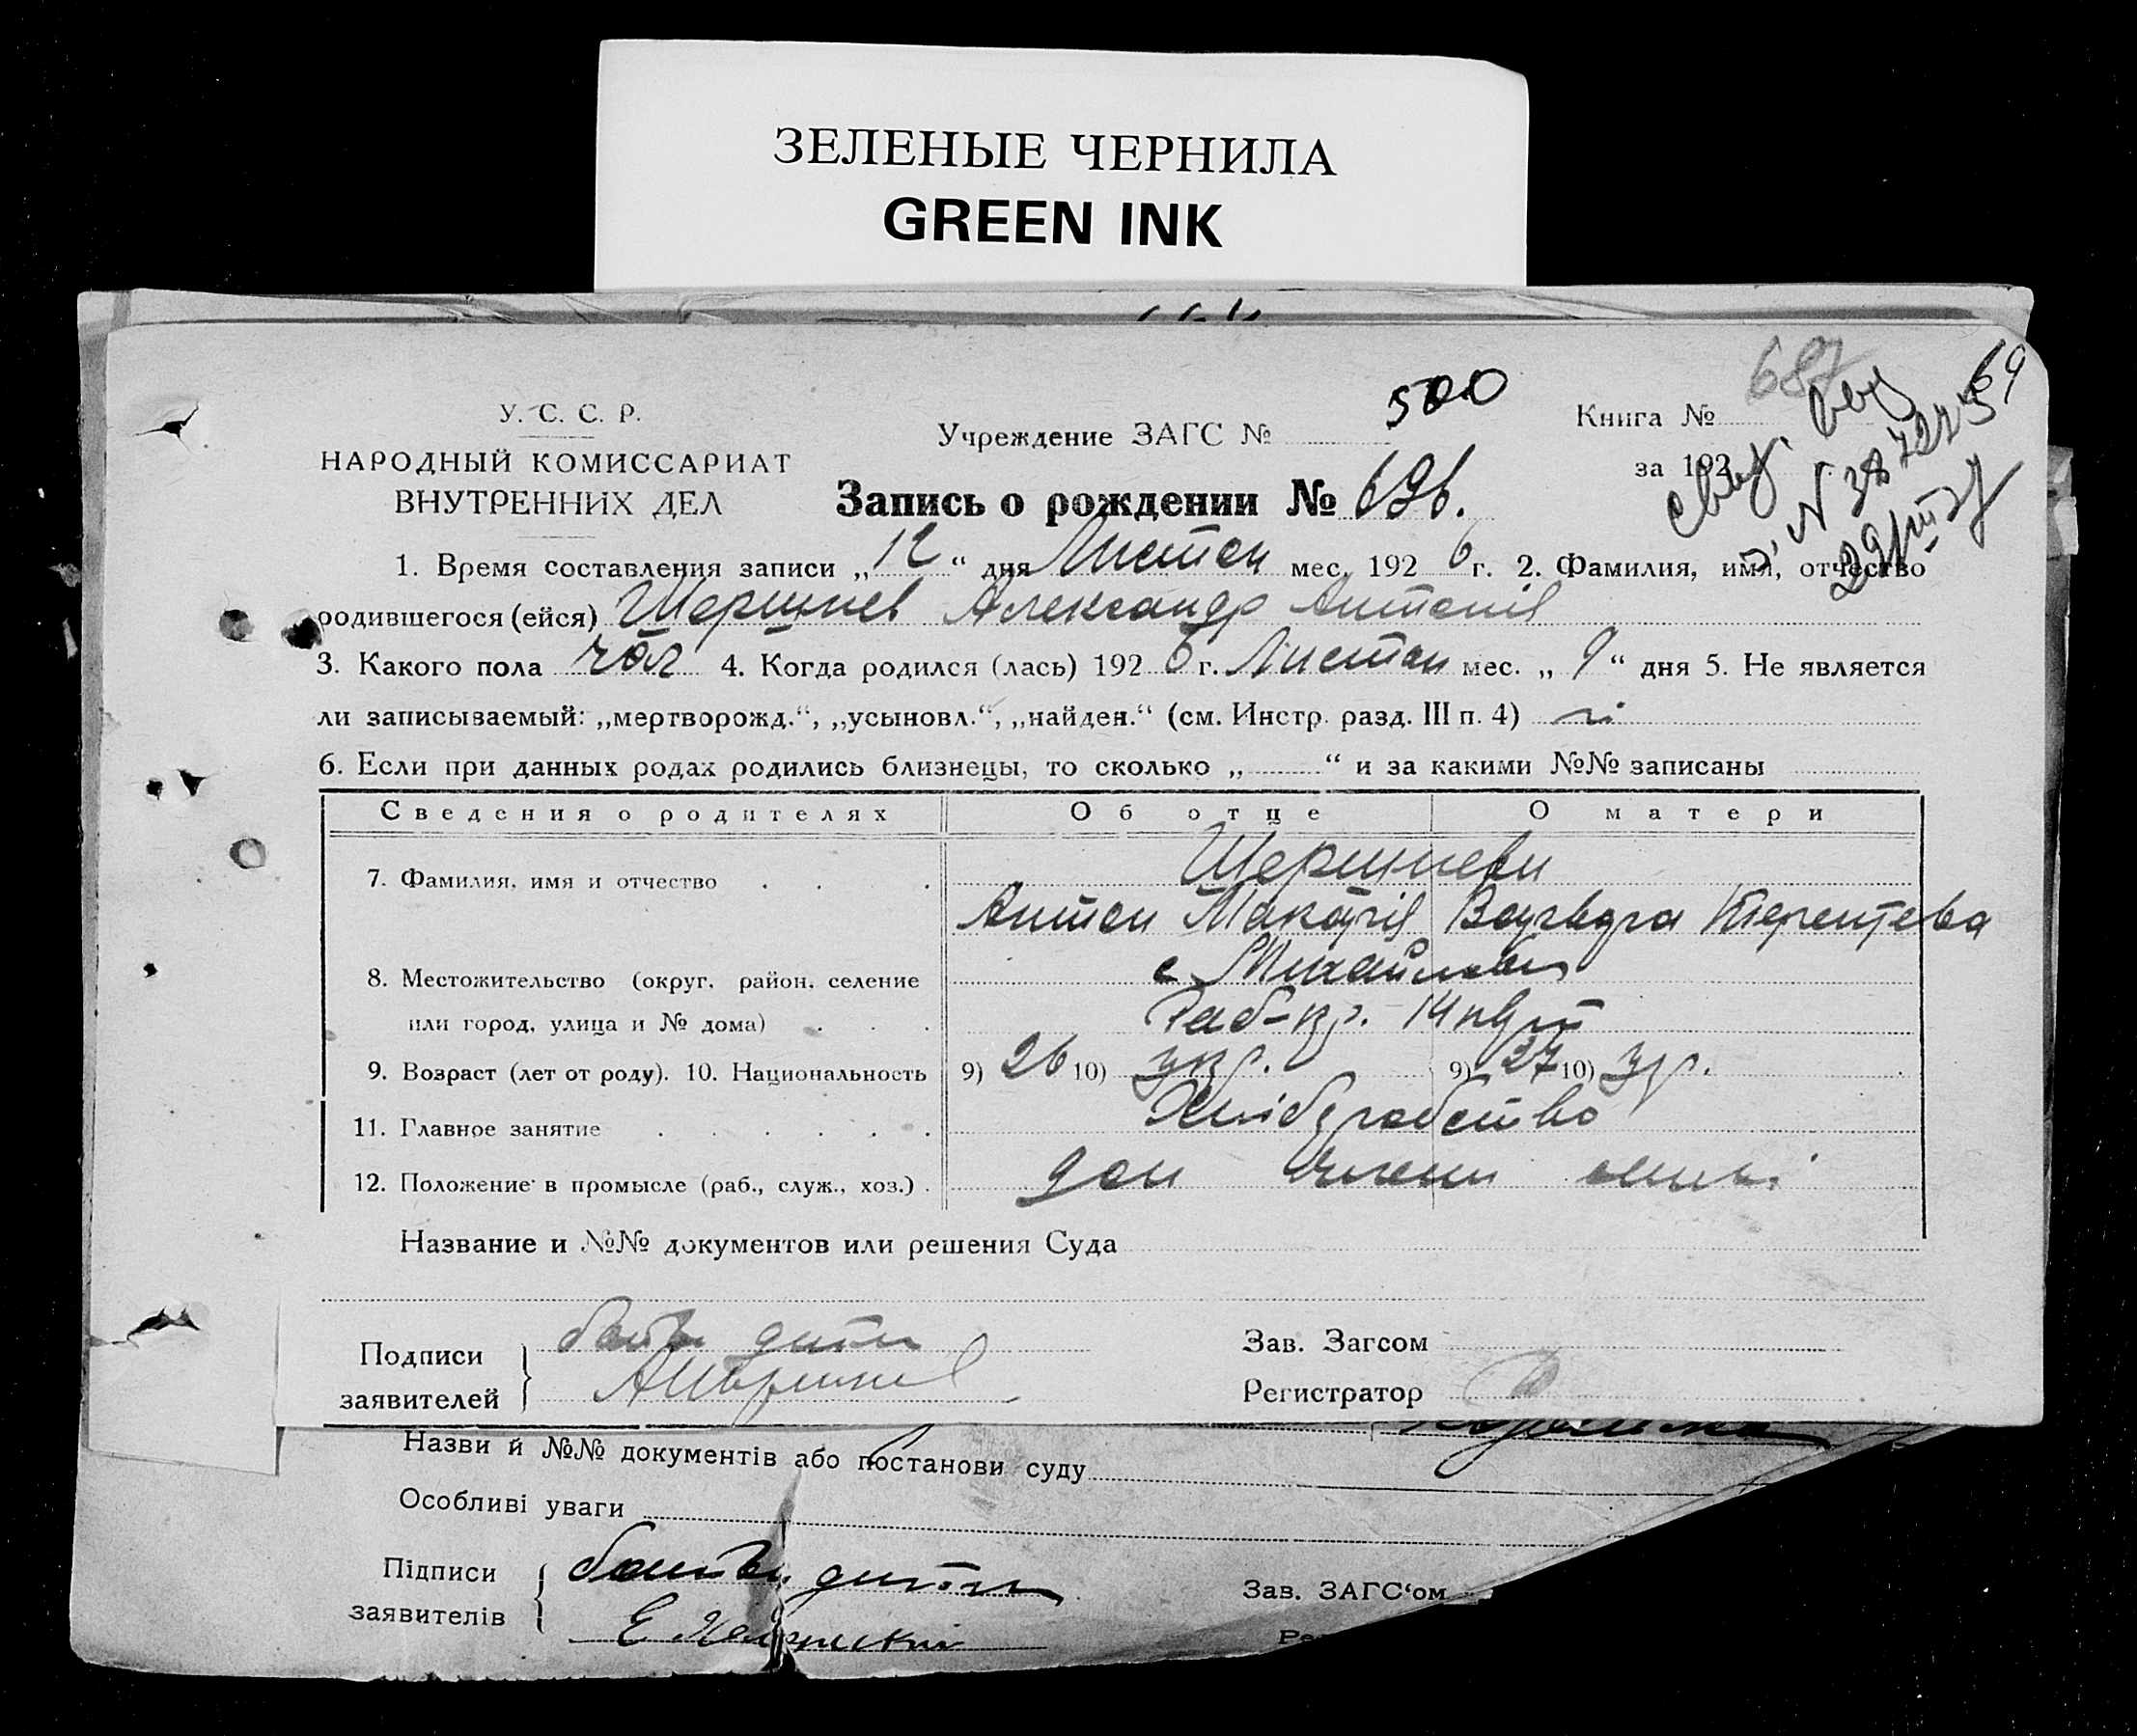 ЗЕЛЕНЫЕ ЧЕРНИЛА
GREEN INK
687
69
У. С. С. Р.
НАРОДНЫЙ КОМИССАРИАТ
ВНУТРЕННИХ ДЕЛ
Учреждение ЗАГС № 500
Книга №
за 192
Запись о рождении № 696.
1. Время составления записи „12“ дня Листоп мес. 1926 г. 2. Фамилия, имя, отчество
родившегося (ейся) Шершнев Александр Антонів
3. Какого пола чол 4. Когда родился (лась) 1926 г. Листоп мес. „9“ дня 5. Не является
ли записываемый: „мертворожд.“, „усыновл.“, „найден.“ (см. Инстр. разд. III п. 4) ні
6. Если при данных родах родились близнецы, то сколько „ “ и за какими №№ записаны
Сведения о родителях Об отце О матери
7. Фамилия, имя и отчество Шершневи
Антон Макарів
8. Местожительство (округ, район, селение с Михайлівк
или город, улица и № дома)
9. Возраст (лет от роду). 10. Национальность 9) 26 10) укр. 9) 27 10) ур.
11. Главное занятие Хліборобство
12. Положение в промысле (раб., служ., хоз.)
Название и №№ документов или решения Суда
Подписи
заявителей
батьк дити
АШершнев
Зав. Загсом
Регистратор
Назви й №№ документів або постанови суду
Особливі уваги
Підписи
заявителів
батьк дити
Зав. ЗАГС‘ом